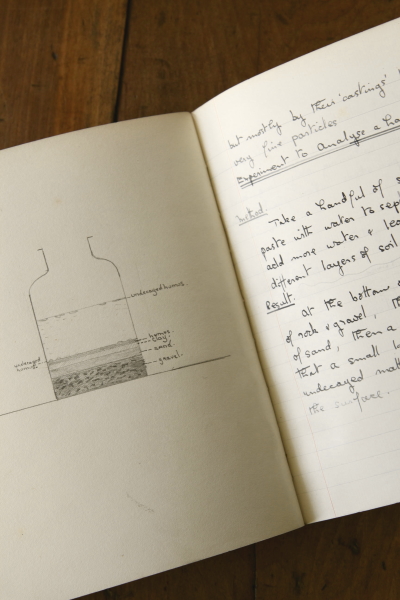 undecayed humus
humus
clay
sand
gravel
undecayed
humus
but mostly by their 'castings'
very fine particles
Experiment to analyse a
Method.
Take a handful of
paste with water to
add more water &
different layers of soil
Result.
at the bottom
of rock & gravel,
of sand, then a
that a small
undecayed
the surface.